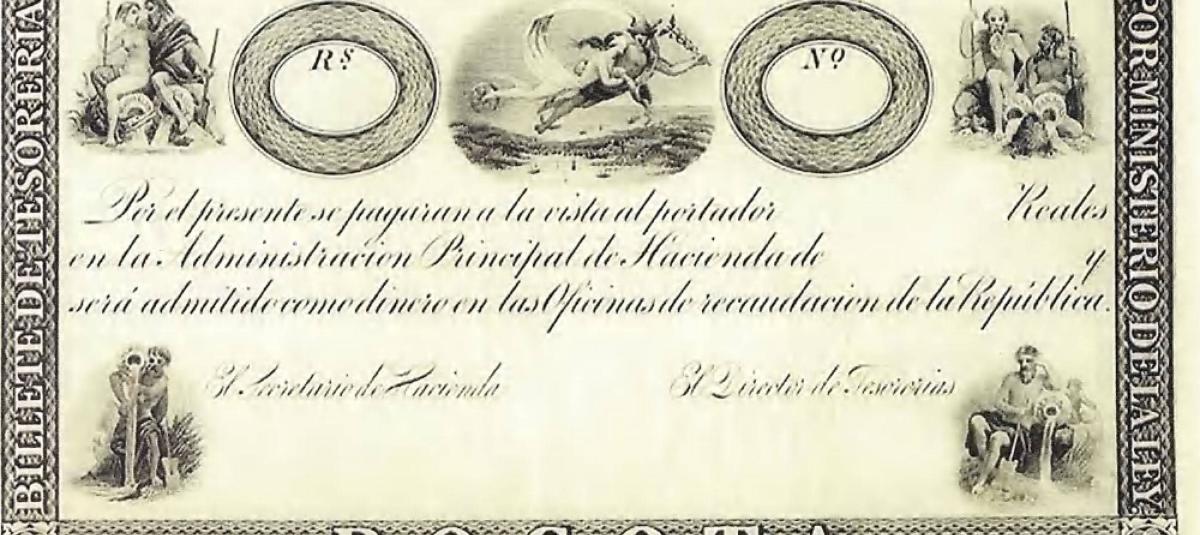 BILLETE DE TESORERIA
Rs.
No
POR MINISTERIO DE LA LEY.
Por el presente se pagaran a la vista al portador Reales
en la Administracion Principal de Hacienda de y
será admitido como dinero en las Oficinas de recaudacion de la República.
El Secretario de Hacienda
El Director de Tesororias
BOGOTA